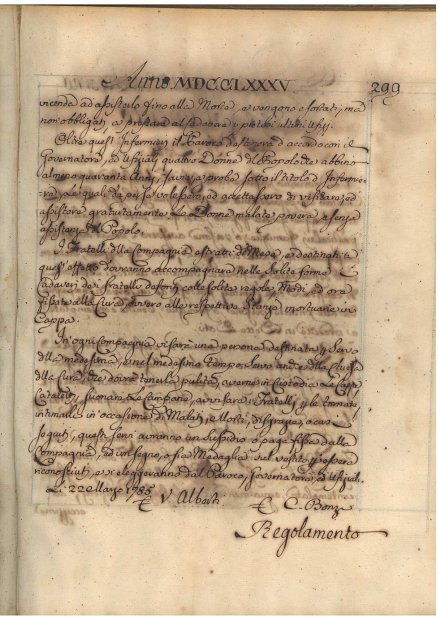 Anno MDCCLXXXV 299
vicenda ad assisterlo fino alla Morte, e vengono esortati, ma
non obbligati, a prestare al Cadavere i pietosi ultimi Ufizj.
Oltre questi Infermieri il Paroco destinerà d'accordo con il
Governatore, ed Ufiziali quattro Donne del Popolo, che abbino
almeno quaranta Anni, savie, e probe sotto il titolo d'Infermie
re, le quali da per se volessero, ed accettassero di visitare, ed
assistere gratuitamente le Donne malate povere, e senza
assistenza del Popolo.
I Fratelli della Compagnia estratti di Mese, e destinati a
quest' effetto dovranno accompagnare nelle solite forme i
Cadaveri dei fratelli defonti colle solite regole, Modi, ed ore
fissate alla Cura, ovvero alle respettive Stanze mortuarie in
Cappa.
In ogni Compagnia vi sarà una persona destinata per Servo
della medesima, e nel medesimo tempo Servo anche della Chiesa
della Cura, che dovrà tenerla pulita, averne in custodia le Cappe,
suonare le Campane, avvisare i Fratelli, per le tornate
intimate in occasione di Malati, e Morti, disgrazie, o cas
questi servi avranno un sussidio, o paga fissa dalla
Compagnia, ed un segno, o sia Medaglia sul vestito per essere
riconosciuti, e si eleggeranno dal Paroco, Governatore, ed Ufiziali.
Li 22 Marzo 1785
V. Alberti
C. Bonsi
Regolamento